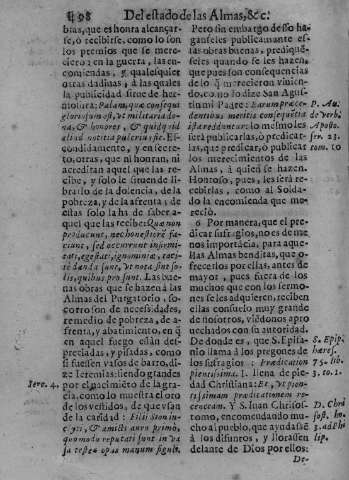 98 Del estado de las Almas, &c.
bras, que es honra alcançar-
se, o recibirse. como lo son
los premios que se mere-
cieron en la guerra, las en-
comiendas, y qualesquier
otras dadinas, à las quales
la publicidad tiene de her-
mosura: Palam, quæ consequi
gloriosum est, vt militaria do-
na, & honores, & quidquid
aliud notitia pulcrius fit. Es-
condidamente, y en secre-
to, otras, que ni honran, ni
acreditan aquel que las re-
cibe, y solo le siruen de li-
brarlo de la dolencia, de la
pobreza, y de la afrenta; de
estas solo la ha de saber a-
quel que las recibe: Quæ non
producunt, nec honestiorē fa-
ciunt, sed occurrunt infirmi-
tati, egestati, ignominiæ, taci-
tè danda sunt, vt nota sint so-
lis, quibus prosunt. Las bue-
nas obras que se hazen à las
Almas del Purgatorio, so-
corro son de necessidades,
remedio de pobreza, de a-
frenta, y abatimiento, en q̃
en aquel fuego estàn des-
preciadas, y pisadas, como
si fuessen vasos de barro, di-
ze Ieremias: siendo grandes
Iere. 4. por el nacimiēto de la gra-
cia, como lo muestra el oro
de los vestidos, de que vsan
de la caridad: Filij Sion in-
cyti, & amicti auro primo,
quomodo reputati sunt in va-
sa testea opus manum figuli.
Pero sin embargo desso ha-
ganseles publicamente es-
tas obras buenas, prediquē-
seles quando se les hazen,
que pues son consequencias
de lo q̃ merecieron vivien-
do, como lo dize San Agus-
tin mi Padre: Earum præce- P. Au.
dentibus meritis consequētia de verb.
ista redduntur: lo mesmo les Aposto.
serà publicarlas, ò predicar- ser. 23.
las, que predicar, ò publicar tom. 10
los merecimientos de las
Almas, à quien se hazen.
Honroso, pues, les serà re-
cebirlas, como al Solda-
do la encomienda que me-
reciò.
6 Por manera, que el pre-
dicar sufragios, no es de me-
nos importācia, para aque-
llas Almas benditas, que o-
frecerlos por ellas, antes de
mayor, pues fuera de los
muchos que con los sermo-
nes se les adquieren, reciben
ellas consuelo muy grande
de nosotros, viēdonos apro-
uechados con su autoridad.
De donde es, que S. Epifa- S. Epip.
nio llama à los pregones de hæres.
los sufragios: Prædication 75. lib.
plenissima. I. llena de pie- 3. to. 1.
dad Christiana: Et, vt pien-
tissimam prædicationem re-
creacam. Y S. Iuan Chrisos- D. Chri
tomo, encomendando mu- sost. in
cho al pueblo, que ayudassē 3. ad Phi
à los difuntos, y llorassen lip.
delante de Dios por ellos:
De-